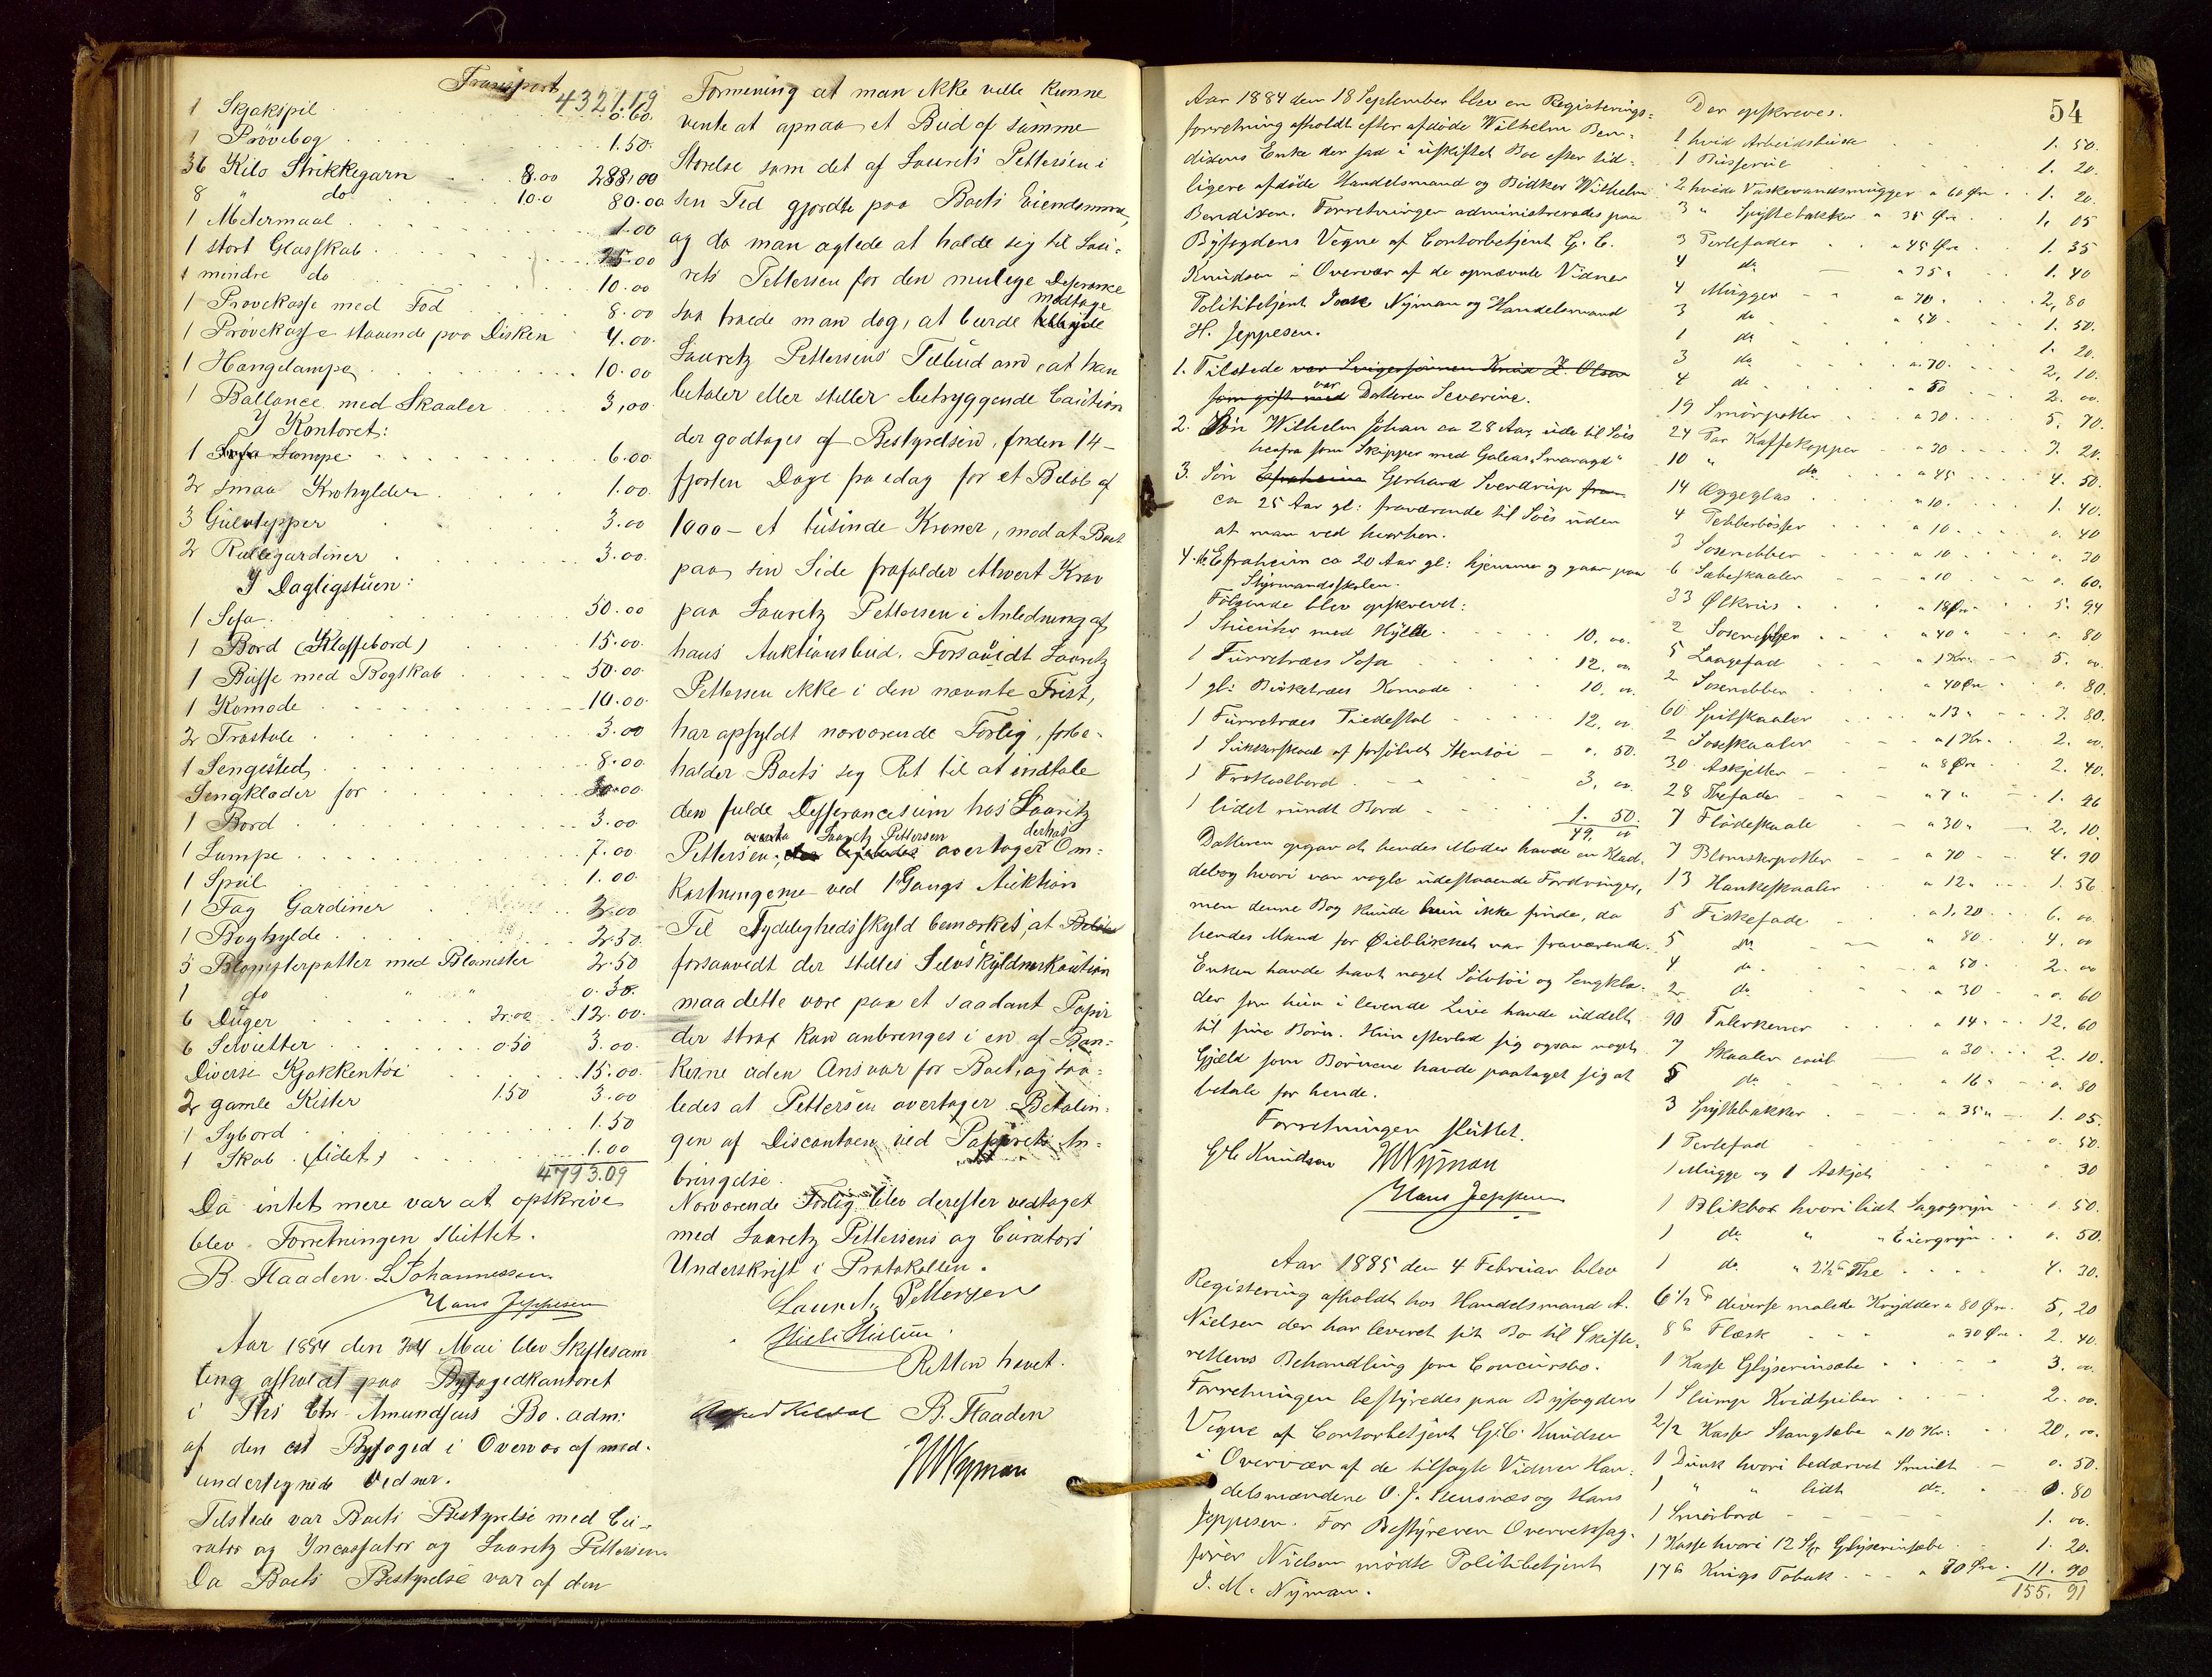 Transport 4321.19
1 Skjakspil 0.60.
1 Prövebog 1.50.
36 Kilo Strikkegarn 8.00 288.00
8 " do 10.0 80.00
1 Metermaal 1.00
1 stort Glasskab 25.00
1 mindre do 10.00
1 Prövekasse med Fod 8.00
1 Prövekasse staaende paa Disken 4.00.
1 Hængelampe 10.00
1 Ballance med Skaaler 3,00
I Kontoret:
1 Lampe 6.00
2 smaa Krohylder 1.00.
3 Gulvtepper 3.00
2 Rullegardiner 3.00.
I Dagligstuen:
1 Sofa 50.00
1 Bord (Klaffebord) 15.00.
1 Buffe med Bogskab 50.00
1 Komode 10.00.
2 Træstole 3.00
1 Sengested 8.00
Sengklæder for 30.00
1 Bord 3.00
1 Lampe 7.00
1 Speil 1.00.
1 Fag Gardiner 2.00
1 Boghylde 2.50.
5 Blomsterpotter med Blomster 2.50
1 do " " 0.30.
6 Duger 2.00 12.00.
6 Servietter 0.50 3.00.
Diverse Kjökkentöi 15.00.
2 gamle Kister 1.50 3.00
1 Sybord 1.50
1 Skab (lidet) 1.00
4793.09
Da intet mere var at opskrive
blev Forretningen sluttet.
B. Flaaden. L. Johannessen
Hans Jeppesen
Aar 1884 den 24 Mai blev Skiftesam
ling afholdt paa Byfogedkontoret
i Ths Chr Amundsens Bo. adm:
af den cst Byfoged i Overvær af med-
undertegnede Vidner.
Tilstede var Boets Bestyrelse med Cu-
rator og Incassator og Lauretz Pettersen.
Da Boets Bestyrelse var af den
Formening at man ikke vilde kunne
vente at opnaa et Bud af samme
Störelse som det af Lauretz Pettersen i
sin Tid gjordte paa Boets Eiendomme,
og da man agtede at holde sig til Lau-
retz Pettersen for den mulige Differance
saa troede man dog, at burde modtage
Lauretz Pettersens Tilbud om, at han
betaler eller stiller betryggende Caution
der godtages af Bestyrelsen, inden 14-
fjorten Dage fra idag for et Belöb af
1000 - et tusinde Kroner, mod at Boet
paa sin Side frafalder ethvert Krav
paa Lauretz Pettersen i Anledning af
hans Auktionsbud. Forsauidt Lauretz
Pettersen ikke i den nævnte Frist,
har opfyldt nærværende Forlig, forbe-
holder Boets sig Ret til at indtale
den fulde Differancesum hos Lauritz
Pettersen; Lauretz Pettersen overtager derhos Om-
kostningerne ved 1 Gangs Auktion
Til Tydelighedsskyld bemærkes, at
forsaavidt der stilles Selvskyldnerkaution
maa dette være paa et saadant Papir
der strax kan anbringes i en af Ban-
kerne uden Ansvar for Boet, og saa-
ledes at Pettersen overtager Betalin-
gen af Discontoen ved Papirets An-
bringelse.
Nærværende Forlig blev derefter vedtaget
med Lauretz Pettersens og Curators
Underskrift i Protokollen.
Lauretz Pettersen
Retten hævet.
B. Flaaden
JMNyman
54
Aar 1884 den 18 September blev en Registerings-
forretning afholdt efter afdöde Wilhelm Ben-
dixens Enke der sad i uskiftet Boe efter tid-
ligere afdöde Handelsmand og Bödker Wilhelm
Bendixen. Forretningen administreredes paa
Byfogdens Vegne af Contorbetjent G. C.
Knudsen i Overvær af de opnævnte Vidner
Politibetjent Nyman og Handelsmand
H. Jeppesen.
1. Tilstede var Svigersönnen Knud J. Olsen
som gift med var Datteren Severine.
2. Sön Wilhelm Johan ca 28 Aar, ude til Söis
herfra som Skipper med Galeas "Smaragd"
3. Sön Gerhard Sverdrup
ca 25 Aar gl: fraværende til Söis uden
at man ved hvorhen.
4. Efraheim ca 20 Aar gl: hjemme og gaar paa
Styrmandsskolen.
Fölgende blev opskrevet:
1 Stueuhr med Hylde 10. 00.
1 Furretræes Sofa 12. 00
1 gl: Birketræes Komode 10. 00.
1 Furretræes Piedestal 12. 00
1 Sukkerskaal af forsölvet Stentöi 0. 50.
1 Frokostbord 3. 00
1 lidet rundt Bord 1. 50.
49. 00
Datteren opgav at hendes Moder havde en Klad-
debog hvori var nogle udestaaende Fordringer,
men denne Bog kunde hun ikke finde, da
hendes Mand for Öieblikket var fraværende.
Enken havde havt noget Sölvtöi og Sengklæ-
der som hun i levende Live havde uddelt
til sine Börn. Hun efterlod sig ogsaa noget
Gjæld som Börnene havde paataget sig at
betale for hende.
Forretningen sluttet.
G.C. Knudsen JMNyman
Hans Jeppesen
Aar 1885 den 4 Februar blev
Registering afholdt hos Handelsmand A.
Nielsen der har leveret sit Bo til Skifte-
rettens Behandling som Concursbo.
Forretningen bestyredes paa Byfogdens
Vegne af Contorbetjent G.C. Knudsen
i Overvær af de tilsagte Vidner Han-
delsmændene O. J. Stensnæs og Hans
Jeppesen. For Bestyreren Overretssag-
förer Nielsen mödte Politibetjent
J. M. Nyman.
Der opskreves.
1 hvid Arbeidsbluse 1. 50.
1 Busserul 1. 20.
2 hvide Vaskevandsmugger a 60 Öre 1. 20.
3 " Spyttebakker a 35 Öre 1, 05
3 Terlefader a 45 Öre 1. 35
4 do " 35 " 1. 40
4 Mugger a 70 2,80
3 do " 50 1. 50.
1 do 1. 20.
3 do a 70 2, 10.
4 do " 50 2. 00.
19 Smörpotter a 30 5. 70.
24 Par Kaffekopper " 30 7. 20.
10 " do " 45 4. 50.
14 Æggeglas " 10. 1. 40.
4 Pebberbösser " 10 0. 40
3 Sosenebber " 10 0. 30
6 Sæbeskaaler " 10 0. 60.
33 Ölkrus " 18 Öre 5. 94
2 Sosenebber " 40 " 0. 80
5 Laagefad " 1 Kr. 5. 00.
2 Sosenebber " 40 Öre 0. 80.
60 Spilskaaler " 13 " 7. 80.
2 Soseskaaler " 1 Kr. 2. 00
30 Askjetter " 8 Öre 2. 40.
28 Thefade " 7 " 1. 96
7 Flödeskaale " 30 " 2. 10.
7 Blomsterpotter " 70 4. 90
13 Hankeskaaler " 12 " 1. 56
5 Fiskefade a 1, 20 6. 00
5 do " 80 4. 00
4 do a 50 2. 00
2 do " 30 0. 60
90 Talerkener " 14 12. 60
7 Skaaler coul " 30 2. 10.
5 do " 16 0. 80
3 Spyttebakker " 35 " 1. 05.
1 Terlefad 0. 50.
1 Mugge og 1 Askjet " 30
1 Blikbox hvori lidt Sagogryn 0. 50.
1 do " " Eiergryn 0. 50.
1 do " 2½ The 4. 30.
6½ diverse malede Krydder a 80 Öre 5, 20
8 Flæsk a 30 Öre 2. 40.
1 Kasse Glyserinsæbe 3. 00.
1 Slump Kridtpiber 2. 00.
2/2 Kasser Stangsæbe a 10 Kr. 20, 00.
1 Dunk hvori bedærvet Smult 0. 50.
1 " " lidt do. 0. 80
1 Smörbord 1. 00.
1 Kasse hvori 12 St. Glyserinsæbe 1. 20.
17 Krings Tobak a 70 Öre 11. 90
155. 91